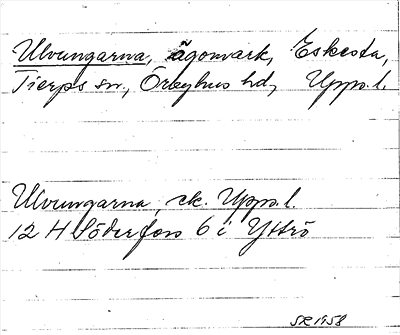 Ulvungarna, ägomark, Eskesta,
Tierps sn, Örbyhus hd, Upps.l.
Ulvungarna, ek. Upps.l.
12 H Söderfors 6 i Yttrö
SR 1958